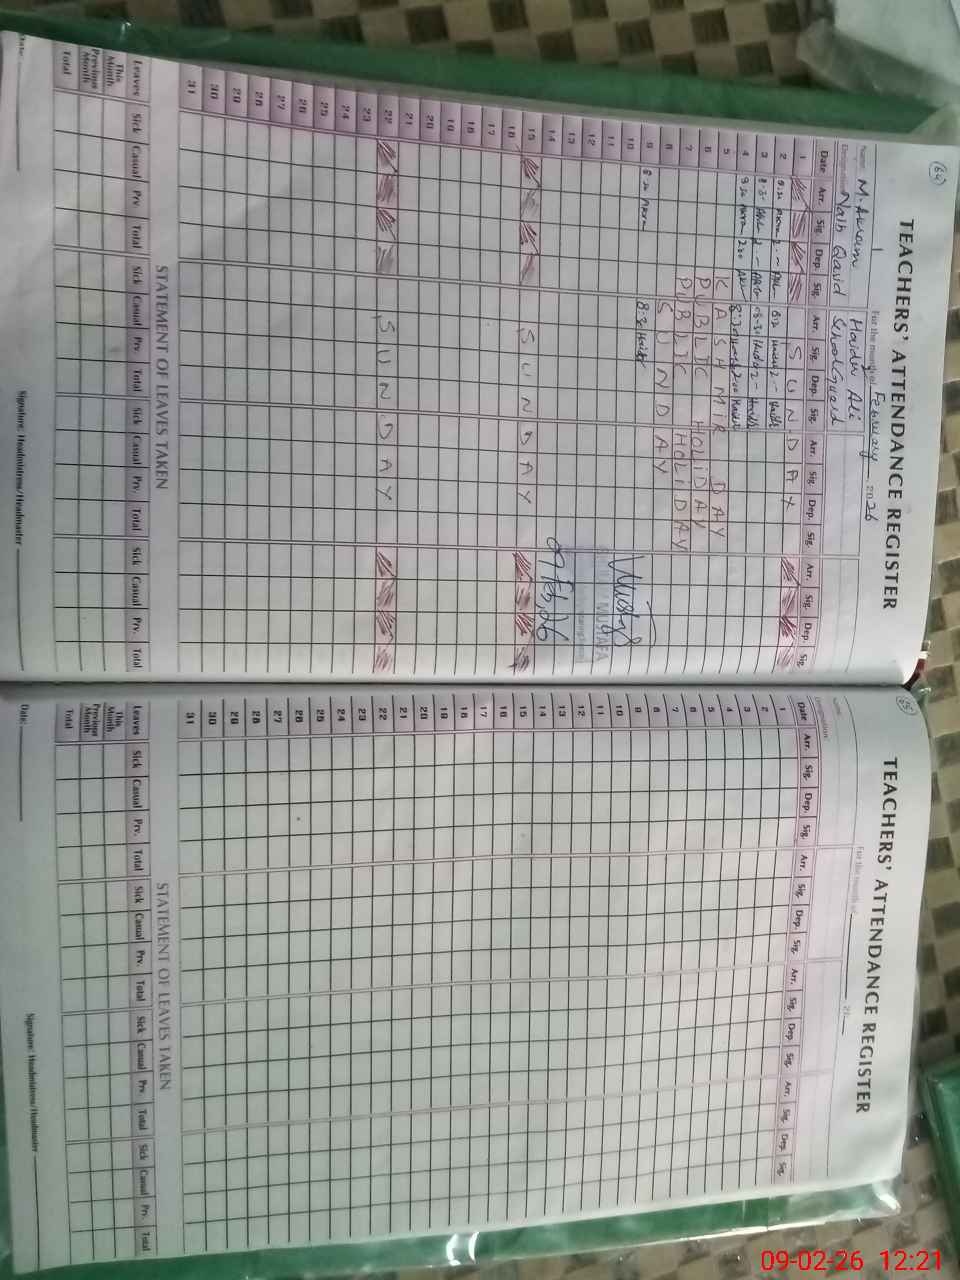 (64)
TEACHERS' ATTENDANCE REGISTER
For the month of February 2026
Name M. Akram Haider Ali
Designation Naib Qasid School Guard
Date Arr. Sig. Dep. Sig. Arr. Sig. Dep. Sig. Arr. Sig. Dep. Sig. Arr. Sig. Dep. Sig.
1 SUNDAY
2
3
4
5 KASHMIR DAY
6 PUBLIC HOLIDAY
7 PUBLIC HOLIDAY
8 SUNDAY
9 8:30 8:30 Haider
10
11 MUSTAFA
12
13
14 09 Feb, 26
15 SUNDAY
16
17
18
19
20
21
22 SUNDAY
23
24
25
26
27
28
29
30
31
STATEMENT OF LEAVES TAKEN
Leaves Sick Casual Prv. Total Sick Casual Prv. Total Sick Casual Prv. Total Sick Casual Prv. Total
This Month
Previous Month
Total
Date: Signature: Headmistress/Headmaster
TEACHERS' ATTENDANCE REGISTER
For the month of 20
Name
Designation
Date Arr. Sig. Dep. Sig. Arr. Sig. Dep. Sig. Arr. Sig. Dep. Sig. Arr. Sig. Dep. Sig.
1
2
3
4
5
6
7
8
9
10
11
12
13
14
15
16
17
18
19
20
21
22
23
24
25
26
27
28
29
30
31
STATEMENT OF LEAVES TAKEN
Leaves Sick Casual Prv. Total Sick Casual Prv. Total Sick Casual Prv. Total Sick Casual Prv. Total
This Month
Previous Month
Total
Date: Signature: Headmistress/Headmaster
09-02-26 12:21